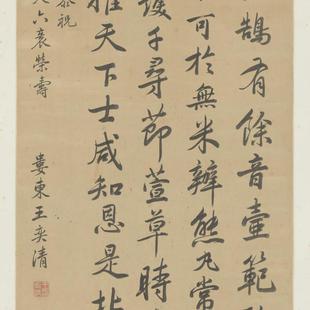 鵠有餘音壺範
可於無米辨熊丸常
千尋節萱草時
天下士咸知恩是
恭祝
人六袠榮壽
婁東王奕清